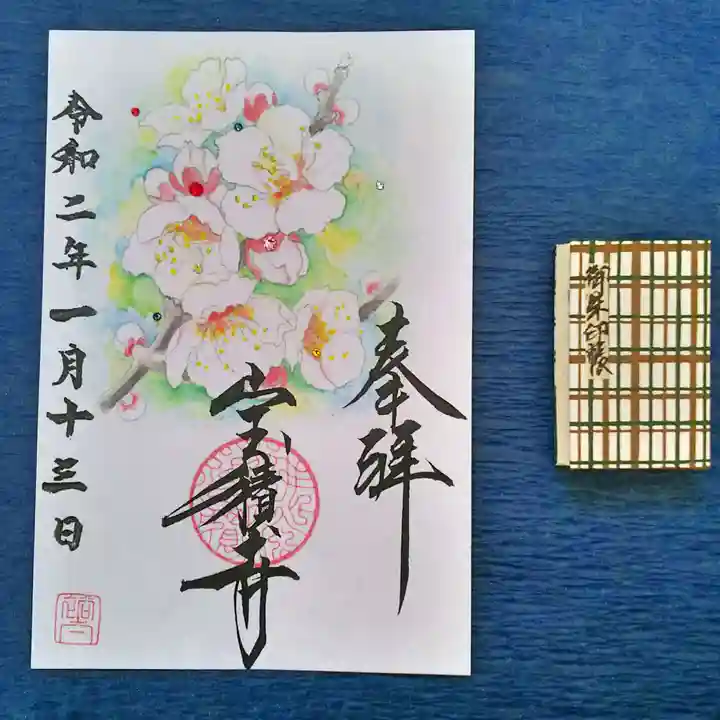 奉拝
宝積寺
令和二年一月十三日
御朱印帳